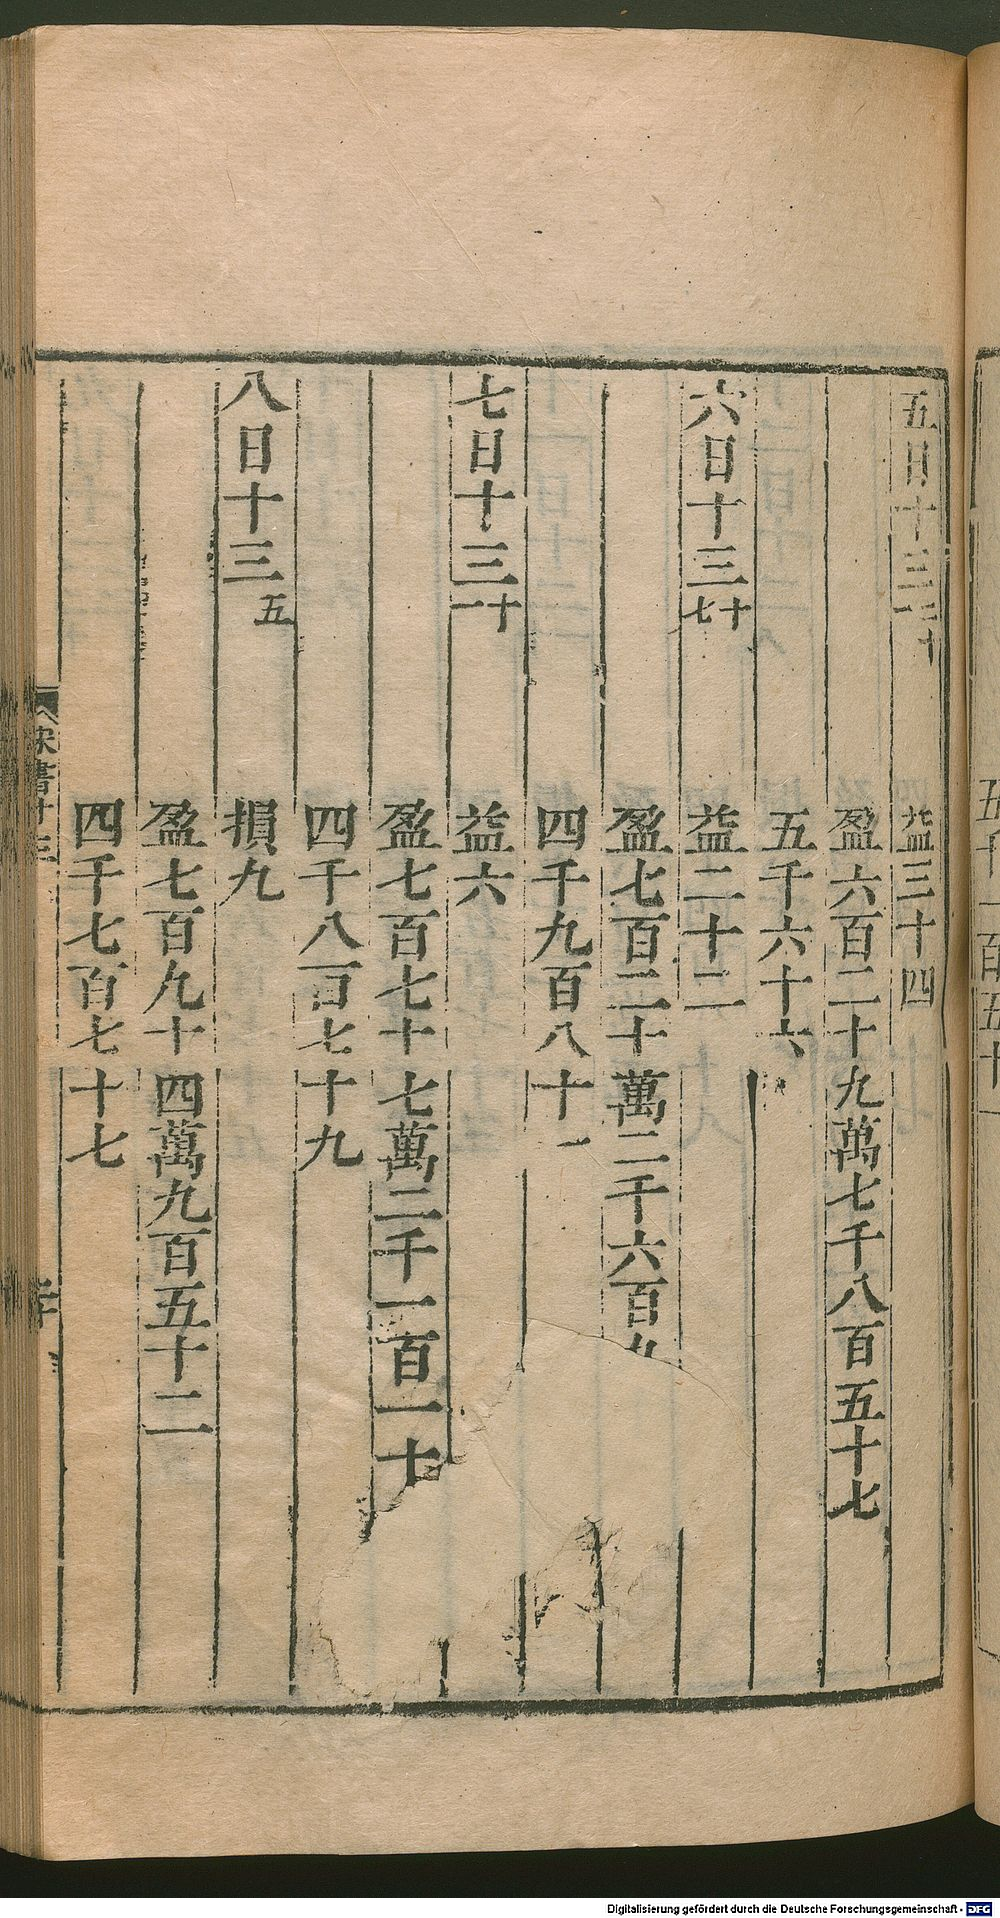 五日十三二十一
益三十四
盈六百二十九萬七千八百五十七
五千六十六
六日十三十七
益二十二
盈七百二十萬二千六百九
四千九百八十一
七日十三十一
益六
盈七百七十七萬二千一百一十
四千八百七十九
八日十三五
損九
盈七百九十四萬九百五十二
四千七百七十七
宋書十三
Digitalisierung gefördert durch die Deutsche Forschungsgemeinschaft - DFG